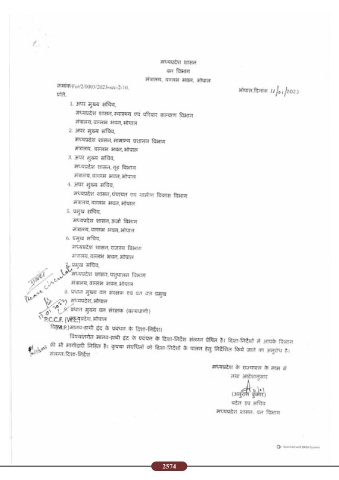 मध्यप्रदेश शासन
वन विभाग
मंत्रालय, वल्लभ भवन, भोपाल
भोपाल,दिनांक
प्रति,
1. अपर मुख्य सचिव,
मध्यप्रदेश शासन,स्वास्थ्य एवं परिवार कल्याण विभाग
मंत्रालय,वल्लभ भवन,भोपाल
2. अपर मुख्य सचिव,
मध्यप्रदेश शासन,सामान्य प्रशासन विभाग
मंत्रालय, वल्लभ भवन,भोपाल
3. अपर मुख्य सचिव,
मध्यप्रदेश शासन,गृह विभाग
मंत्रालय,वल्लभ भवन,भोपाल
4. अपर मुख्य सचिव,
मध्यप्रदेश शासन,पंचायत एवं ग्रामीण विकास विभाग
मंत्रालय,वल्लभ भवन,भोपाल
5. प्रमुख सचिव,
मध्यप्रदेश शासन,ऊर्जा विभाग
मंत्रालय,वल्लभ भवन,भोपाल
6. प्रमुख सचिव,
मध्यप्रदेश शासन,राजस्व विभाग
मंत्रालय, वल्लभ भवन,भोपाल
प्रमुख सचिव,
मध्यप्रदेश शासन,पशुपालन विभाग
मंत्रालय, वल्लभ भवन,भोपाल
Please circulate
8. प्रधान मुख्य वन संरक्षक एवं वन बल प्रमुख
मध्यप्रदेश, भोपाल
प्रधान मुख्य वन संरक्षक (वन्यप्राणी)
P.C.C.F. मध्यप्रदेश,भोपाल
मानव-हाथी द्वंद के प्रबंधन के दिशा-निर्देश।
विषयांतर्गत मानव-हाथी द्वंद के प्रबंधन के दिशा-निर्देश संलग्न प्रेषित है। दिशा-निर्देशों में आपके विभाग
की भी भागीदारी निहित है। कृपया संबंधितों को दिशा निर्देशों के पालन हेतु निर्देशित किये जाने का अनुरोध है।
संलग्न:दिशा-निर्देश
मध्यप्रदेश के राज्यपाल के नाम से
तथा आदेशानुसार
(अनुराग कुमार)
पदेन उप सचिव
मध्यप्रदेश शासन, वन विभाग
2574